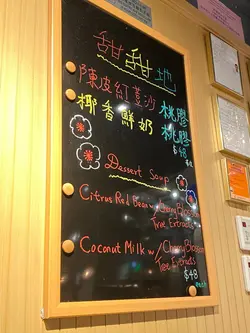 甜甜地
陳皮紅荳沙 桃膠
椰香鮮奶 桃膠
$48
Dessert Soup
Citrus Red Bean w/ Cherry Blossom
Tree Extracts
Coconut Milk w/ Cherry Blossom
Tree Extracts
$48
each